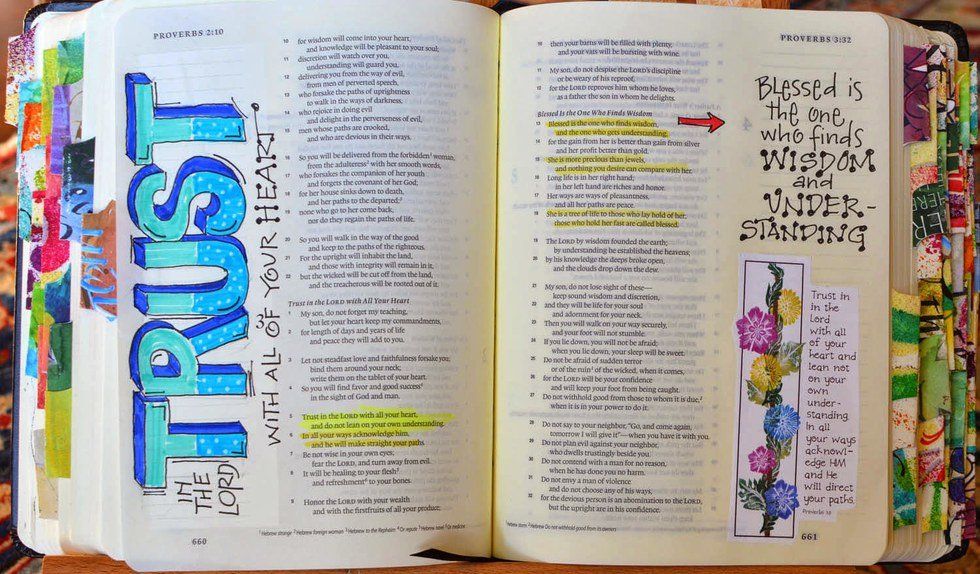 PROVERBS 2:10
TRUST
IN
THE
LORD
WITH ALL OF YOUR HEART.
10 for wisdom will come into your heart,
and knowledge will be pleasant to your soul;
11 discretion will watch over you,
understanding will guard you,
12 delivering you from the way of evil,
from men of perverted speech,
13 who forsake the paths of uprightness
to walk in the ways of darkness,
14 who rejoice in doing evil
and delight in the perverseness of evil,
15 men whose paths are crooked,
and who are devious in their ways.
16 So you will be delivered from the forbidden woman,
from the adulteress with her smooth words,
17 who forsakes the companion of her youth
and forgets the covenant of her God;
18 for her house sinks down to death,
and her paths to the departed;
19 none who go to her come back,
nor do they regain the paths of life.
20 So you will walk in the way of the good
and keep to the paths of the righteous.
21 For the upright will inhabit the land,
and those with integrity will remain in it,
22 but the wicked will be cut off from the land,
and the treacherous will be rooted out of it.
Trust in the LORD with All Your Heart
3
1 My son, do not forget my teaching,
but let your heart keep my commandments,
2 for length of days and years of life
and peace they will add to you.
3 Let not steadfast love and faithfulness forsake you;
bind them around your neck;
write them on the tablet of your heart.
4 So you will find favor and good success
in the sight of God and man.
5 Trust in the LORD with all your heart,
and do not lean on your own understanding.
6 In all your ways acknowledge him,
and he will make straight your paths.
7 Be not wise in your own eyes;
fear the LORD, and turn away from evil.
8 It will be healing to your flesh
and refreshment to your bones.
9 Honor the LORD with your wealth
and with the firstfruits of all your produce;
1 Hebrew strange 2 Hebrew foreign woman 3 Hebrew to the Rephaim 4 Or repute 5 Hebrew navel 6 Or medicine
660
PROVERBS 3:32
10 then your barns will be filled with plenty,
and your vats will be bursting with wine.
11 My son, do not despise the LORD's discipline
or be weary of his reproof,
12 for the LORD reproves him whom he loves,
as a father the son in whom he delights.
Blessed Is the One Who Finds Wisdom
13 Blessed is the one who finds wisdom,
and the one who gets understanding,
14 for the gain from her is better than gain from silver
and her profit better than gold.
15 She is more precious than jewels,
and nothing you desire can compare with her.
16 Long life is in her right hand;
in her left hand are riches and honor.
17 Her ways are ways of pleasantness,
and all her paths are peace.
18 She is a tree of life to those who lay hold of her;
those who hold her fast are called blessed.
19 The LORD by wisdom founded the earth;
by understanding he established the heavens;
20 by his knowledge the deeps broke open,
and the clouds drop down the dew.
21 My son, do not lose sight of these—
keep sound wisdom and discretion,
22 and they will be life for your soul
and adornment for your neck.
23 Then you will walk on your way securely,
and your foot will not stumble.
24 If you lie down, you will not be afraid;
when you lie down, your sleep will be sweet.
25 Do not be afraid of sudden terror
or of the ruin of the wicked, when it comes,
26 for the LORD will be your confidence
and will keep your foot from being caught.
27 Do not withhold good from those to whom it is due,
when it is in your power to do it.
28 Do not say to your neighbor, "Go, and come again,
tomorrow I will give it"—when you have it with you.
29 Do not plan evil against your neighbor,
who dwells trustingly beside you.
30 Do not contend with a man for no reason,
when he has done you no harm.
31 Do not envy a man of violence
and do not choose any of his ways,
32 for the devious person is an abomination to the LORD,
but the upright are in his confidence.
1 Hebrew storm 2 Hebrew Do not withhold good from its owners
661
Blessed is
the one
who finds
WISDOM
and
UNDER-
STANDING
Trust in
in the
Lord
with all
of your
heart and
lean not
on your
own
under-
standing.
In all
your ways
acknowl-
edge HIM
and He
will direct
your paths.